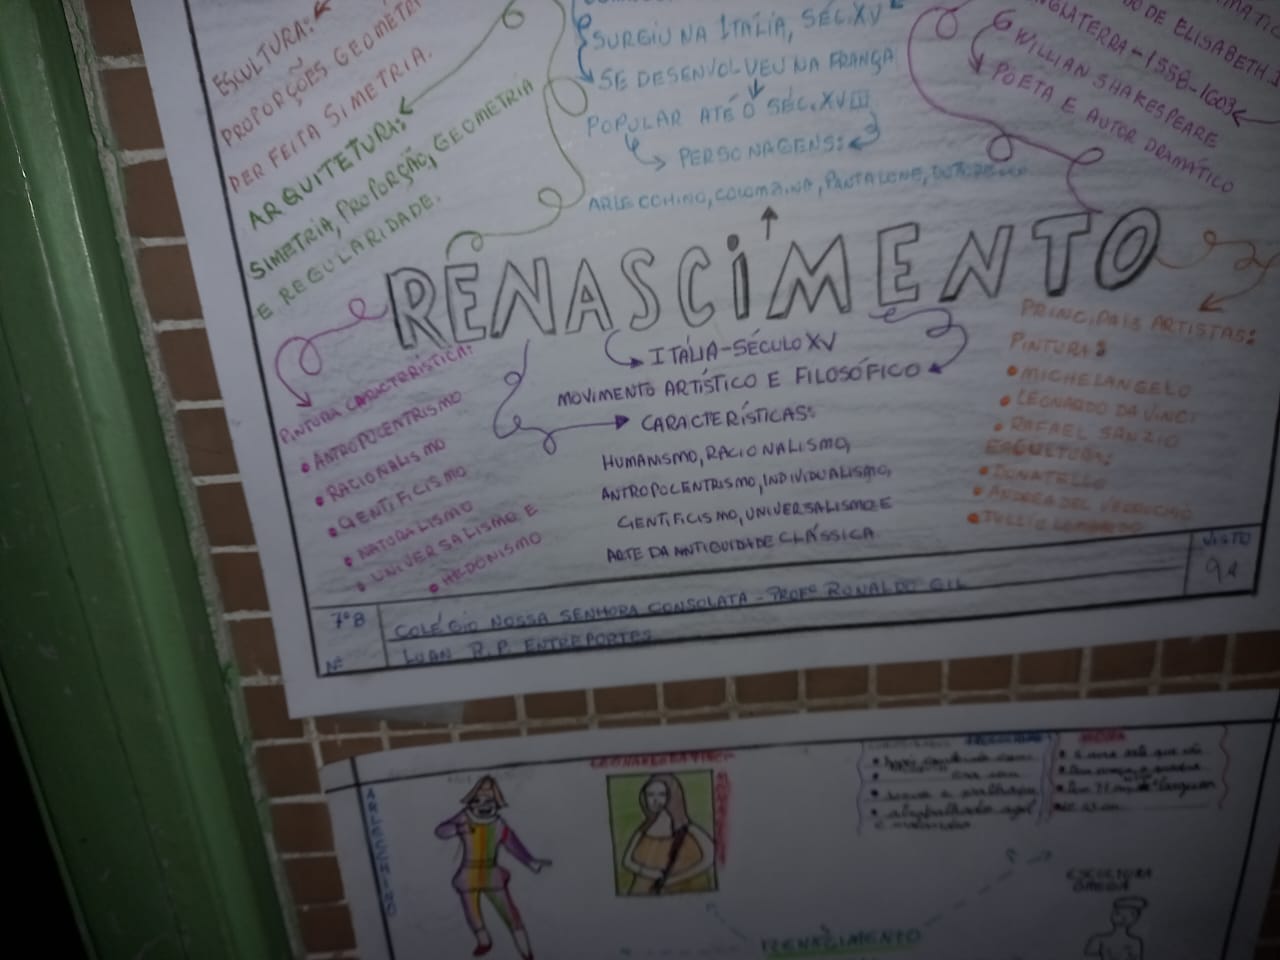 ESCULTURA:
PROPORÇÕES GEOMÉTRI
PERFEITA SIMETRIA.
ARQUITETURA:
SIMETRIA, PROPORÇÃO, GEOMETRIA
E REGULARIDADE.
SURGIU NA ITÁLIA, SÉC. XV
SE DESENVOLVEU NA FRANÇA
POPULAR ATÉ O SÉC. XVIII
PERSONAGENS:
ARLECCHINO, COLOMBINA, PANTALONE,
DO DE ELISABETH I
NGLATERRA - 1558-1603
WILLIAN SHAKESPEARE
POETA E AUTOR DRAMÁTICO
RENASCIMENTO
PINTURA CARACTERÍSTICA:
• ANTROPOCENTRISMO
• RACIONALISMO
• CIENTIFICISMO
• NATURALISMO
• UNIVERSALISMO E
• HEDONISMO
ITÁLIA - SÉCULO XV
MOVIMENTO ARTÍSTICO E FILOSÓFICO
CARACTERÍSTICAS:
HUMANISMO, RACIONALISMO,
ANTROPOCENTRISMO, INDIVIDUALISMO,
CIENTIFICISMO, UNIVERSALISMO E
ARTE DA ANTIGUIDADE CLÁSSICA.
PRINCIPAIS ARTISTAS:
PINTURA:
• MICHELANGELO
• LEONARDO DA VINCI
• RAFAEL SANZIO
ESCULTURA:
• DONATELLO
• ANDREA DEL VERROCHIO
• TULLIO LOMBARDO
7ºB
COLÉGIO NOSSA SENHORA CONSOLATA - PROFº RONALDO GIL
VISTO
Nº
LUAN R. P. ENTREPORTES
ARLECCHINO
LEONARDO DA VINCI
ESCULTURA
RENASCIMENTO